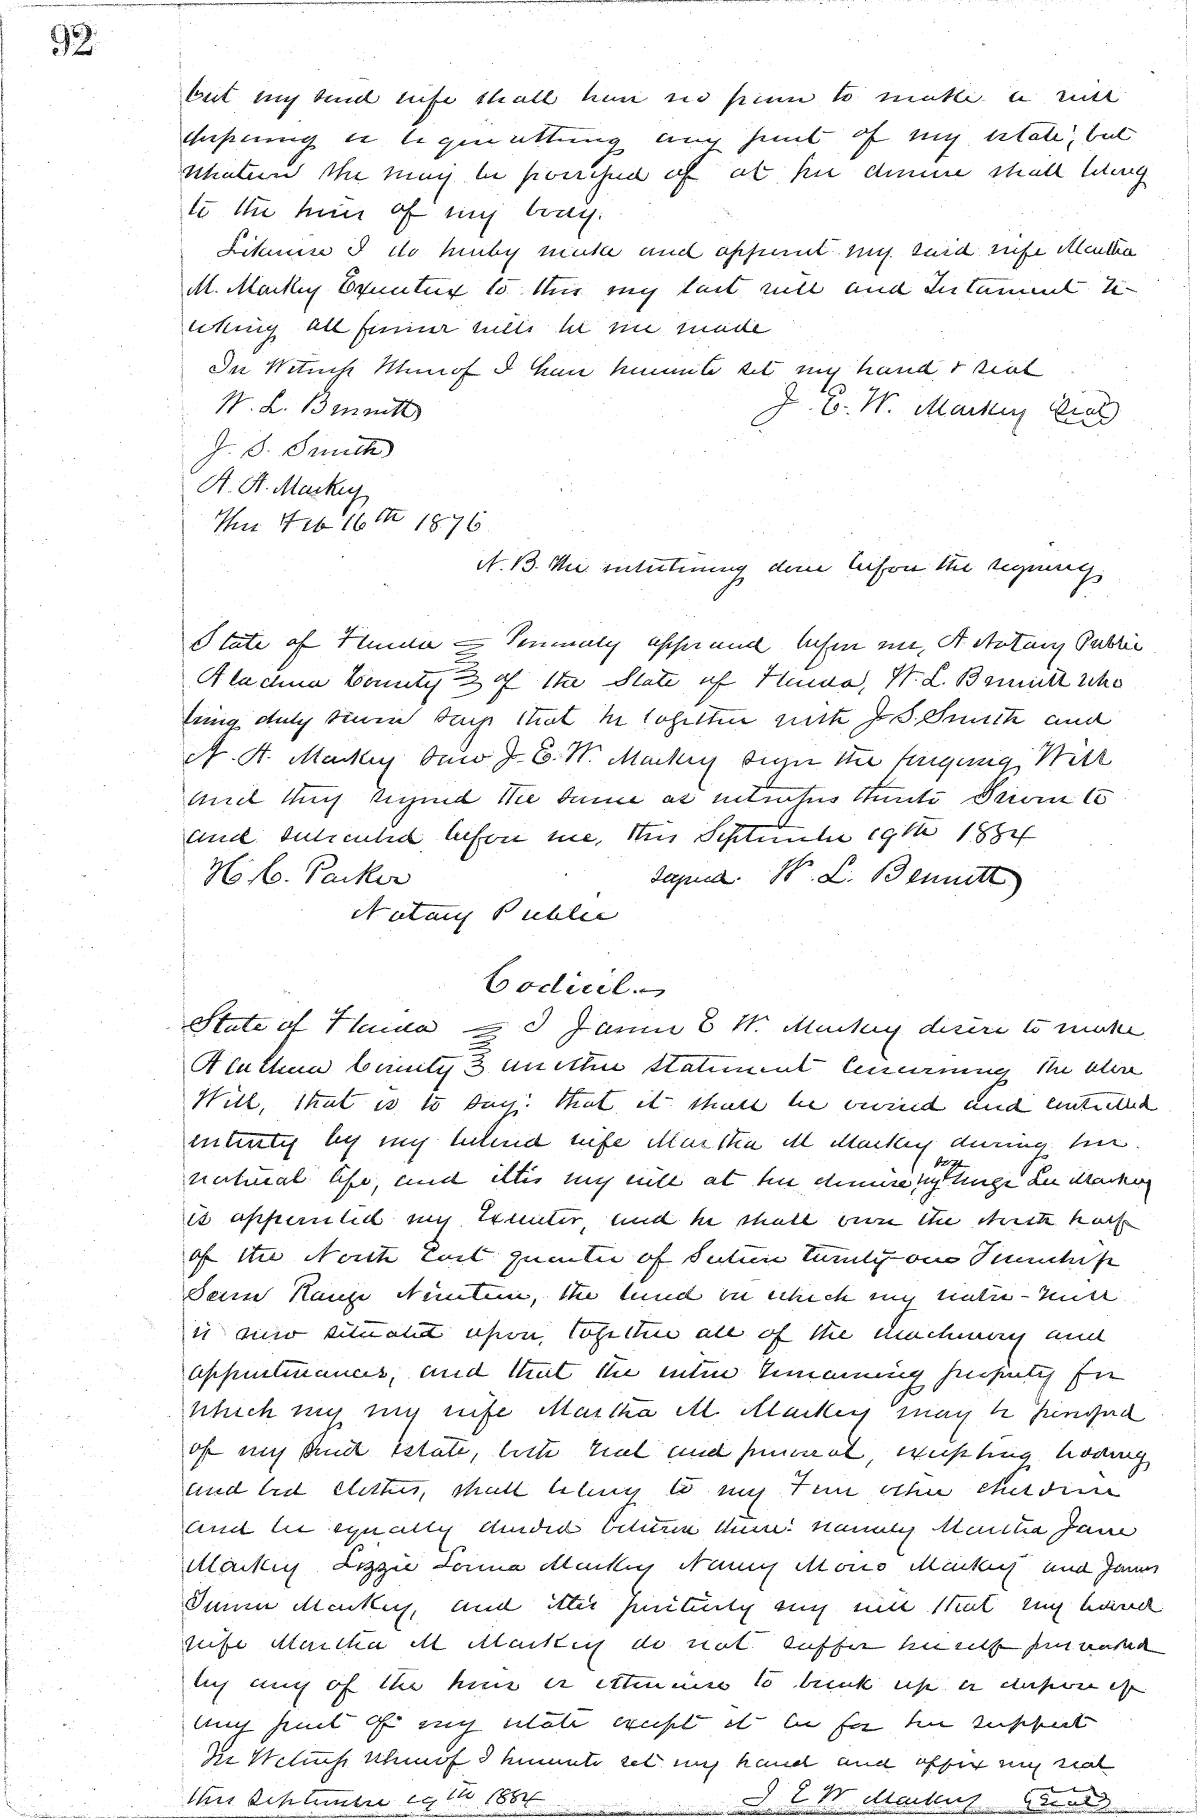 92
but my said wife shall have no power to make a will
disposing or bequeathing any part of my estate, but
whatever she may be possessed of at her demise shall belong
to the heirs of my body.
Likewise I do hereby make and appoint my said wife Martha
M. Markey Executrix to this my last will and Testament re-
voking all former wills by me made
In Witness Whereof I have hereunto set my hand & seal
W. L. Bennett J. E. W. Markey Seal
J. S. Smith
A. A. Markey
This Feb 16th 1876
N.B. The interlining done before the signing
State of Florida Personaly appeared before me, A Notary Public
Alachua County of the State of Florida, W. L. Bennett who
being duly sworn says that he together with J. S. Smith and
A. A. Markey saw J. E. W. Markey sign the forgoing Will
and they signed the same as witnesses thereto Sworn to
and subscribed before me, this September 19th 1884
H. C. Parker signed. W. L. Bennett
Notary Public
Codicil.
State of Florida I James E W. Markey desire to make
Alachua County another statement concerning the above
Will, that is to say: that it shall be owned and controlled
entirely by my beloved wife Martha M Markey during her
natural life, and it is my will at her demise, my son Lee Markey
is appointed my Executor, and he shall own the North half
of the North East quarter of Section twenty-one Township
Seven Range Nineteen, the land on which my water-mill
is now situated upon, together all of the machinery and
appurtinances, and that the entire remaining property for
which my my wife Martha M Markey may be possessed
of my said estate, both real and personal, excepting
and bed clothes, shall belong to my Four other children
and be equally divided between them: namely Martha Jane
Markey Lizzie Markey Nanny Markey and James
Markey, and it is my will that my
wife Martha M Markey do not suffer herself persuaded
by any of the heirs or otherwise to break up or dispose of
any part of my estate except it be for her support
In Witness Whereof I hereunto set my hand and affix my seal
this September 19th 1884 J E W Markey Seal